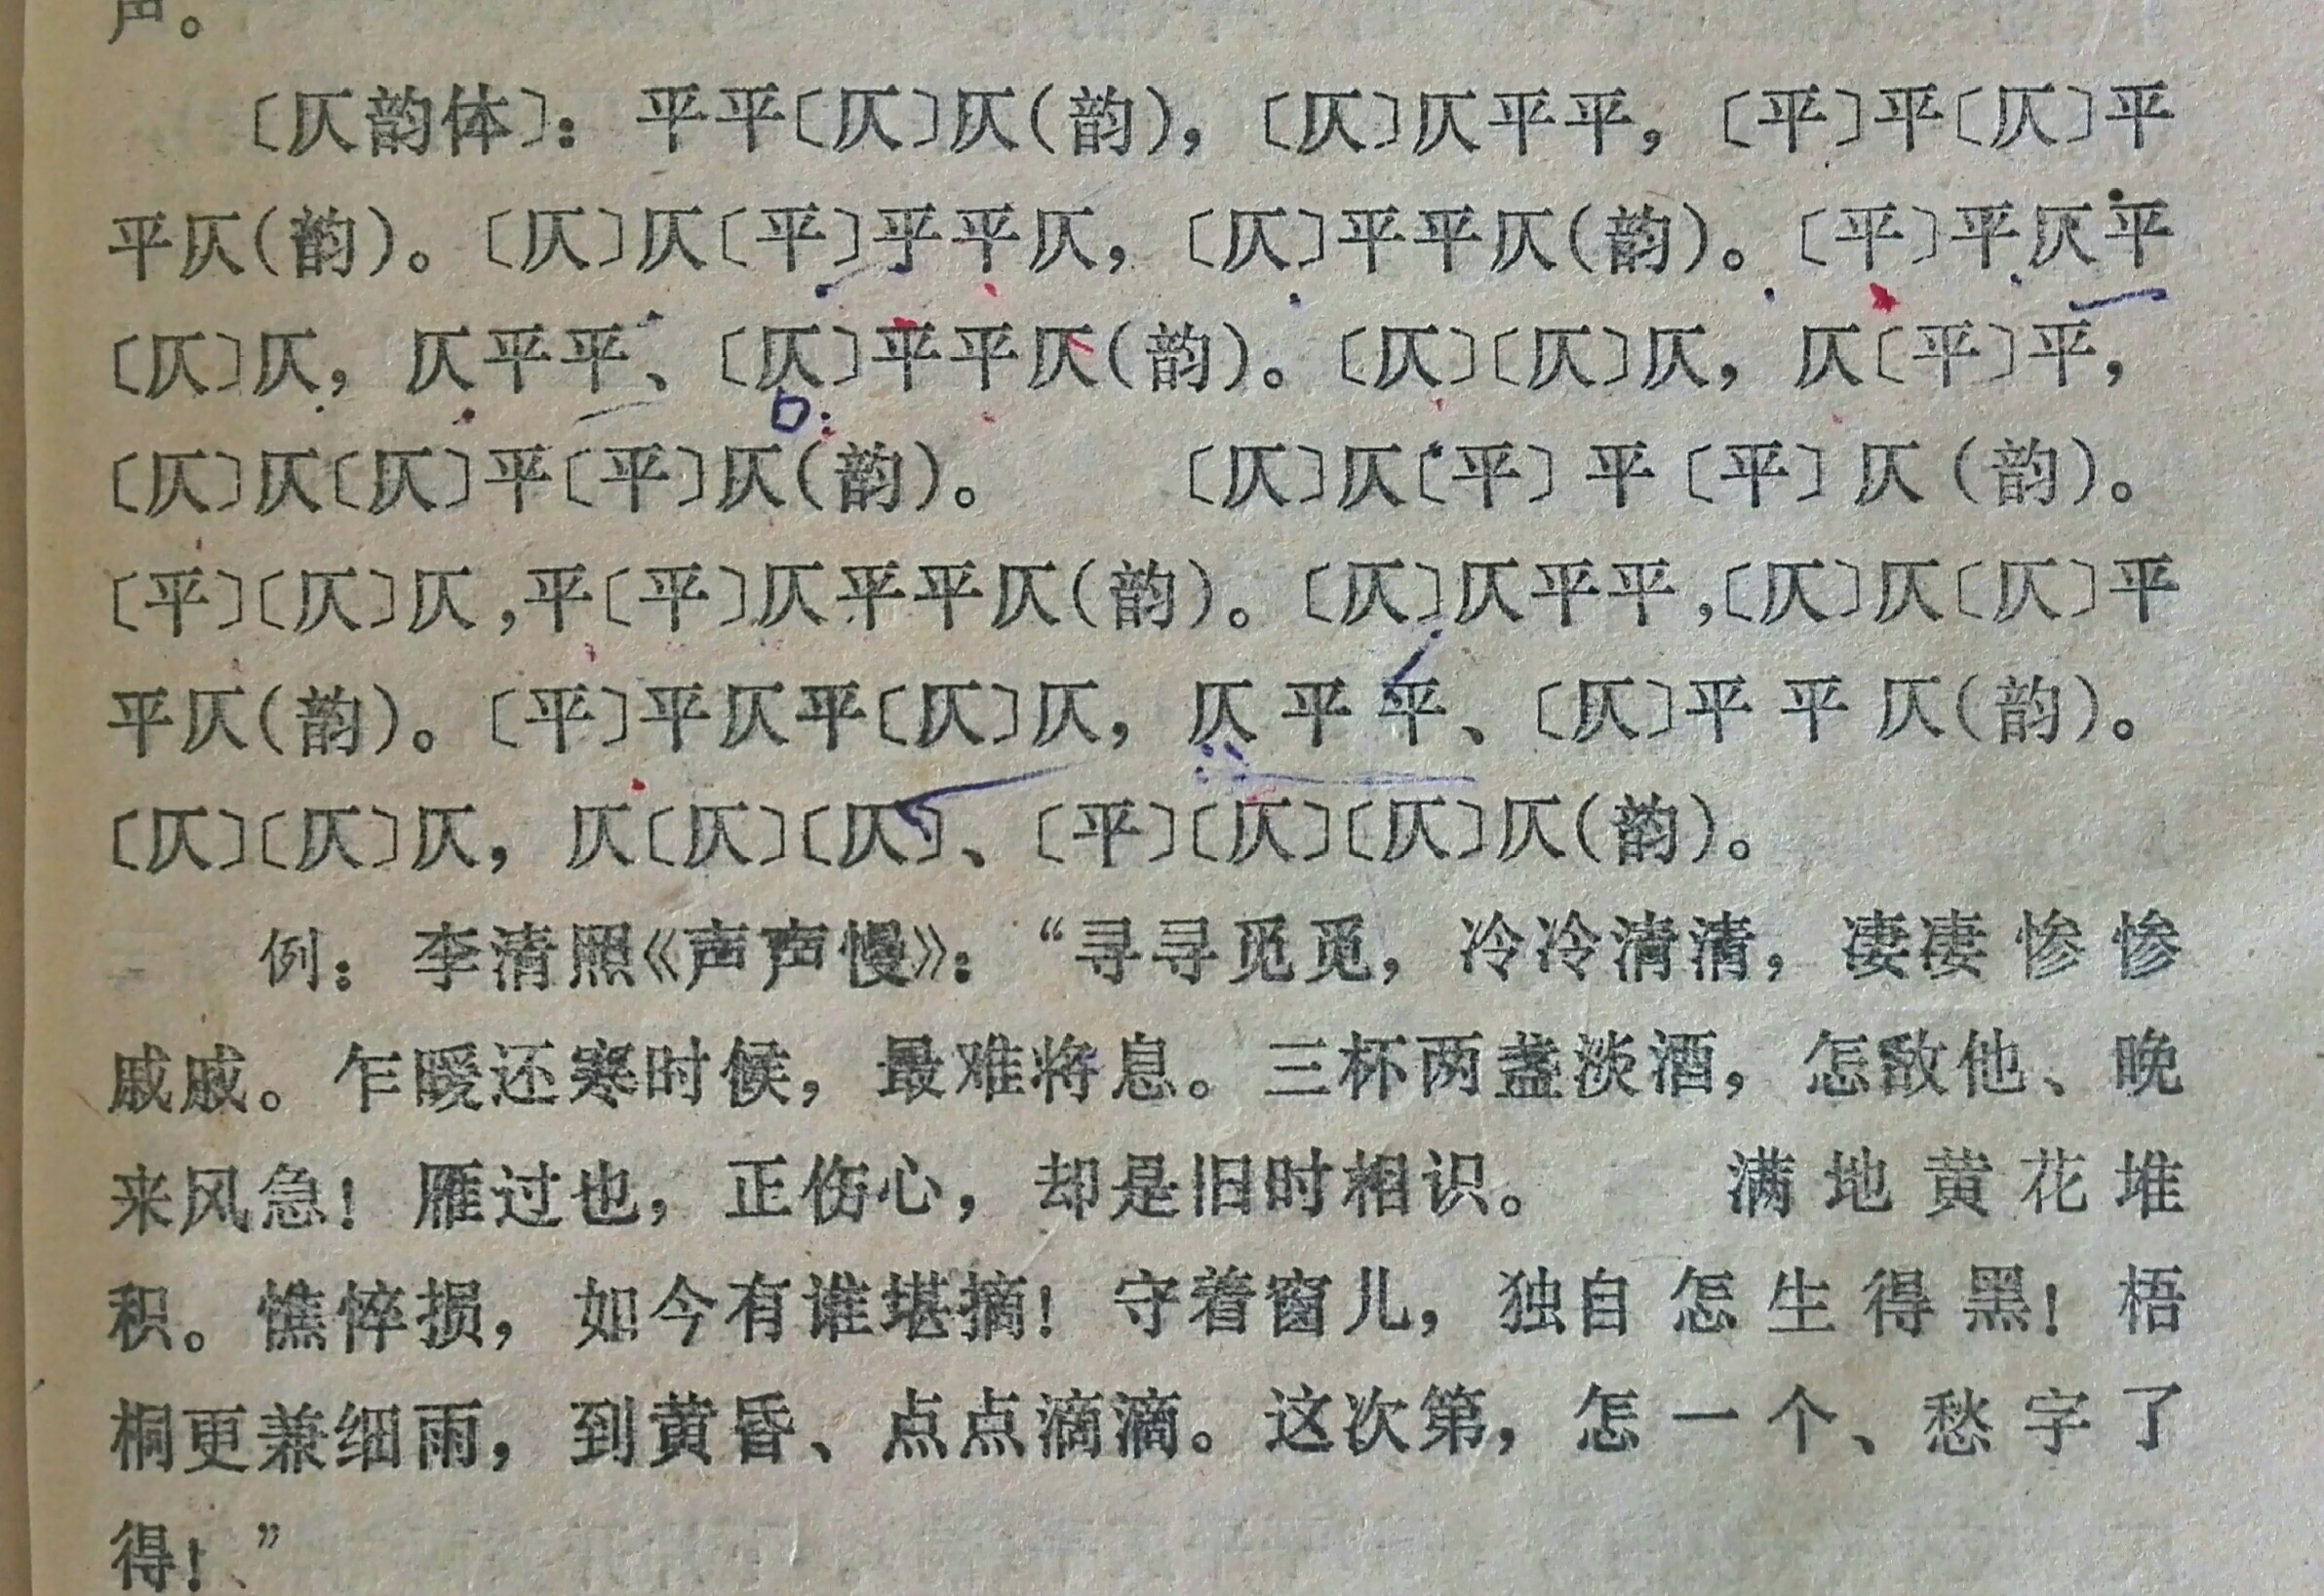 声。
〔仄韵体〕：平平〔仄〕仄（韵），〔仄〕仄平平，〔平〕平〔仄〕平
平仄（韵）。〔仄〕仄〔平〕乎平仄，〔仄〕平平仄（韵）。〔平〕平仄平
〔仄〕仄，仄平平、〔仄〕平平仄（韵）。〔仄〕〔仄〕仄，仄〔平〕平，
〔仄〕仄〔仄〕平〔平〕仄（韵）。　　〔仄〕仄〔平〕平〔平〕仄（韵）。
〔平〕〔仄〕仄，平〔平〕仄平平仄（韵）。〔仄〕仄平平，〔仄〕仄〔仄〕平
平仄（韵）。〔平〕平仄平〔仄〕仄，仄平平、〔仄〕平平仄（韵）。
〔仄〕〔仄〕仄，仄〔仄〕〔仄〕、〔平〕〔仄〕〔仄〕仄（韵）。
例：李清照《声声慢》：“寻寻觅觅，冷冷清清，凄凄惨惨
戚戚。乍暖还寒时候，最难将息。三杯两盏淡酒，怎敌他、晚
来风急！雁过也，正伤心，却是旧时相识。　　满地黄花堆
积。憔悴损，如今有谁堪摘！守着窗儿，独自怎生得黑！梧
桐更兼细雨，到黄昏、点点滴滴。这次第，怎一个、愁字了
得！”